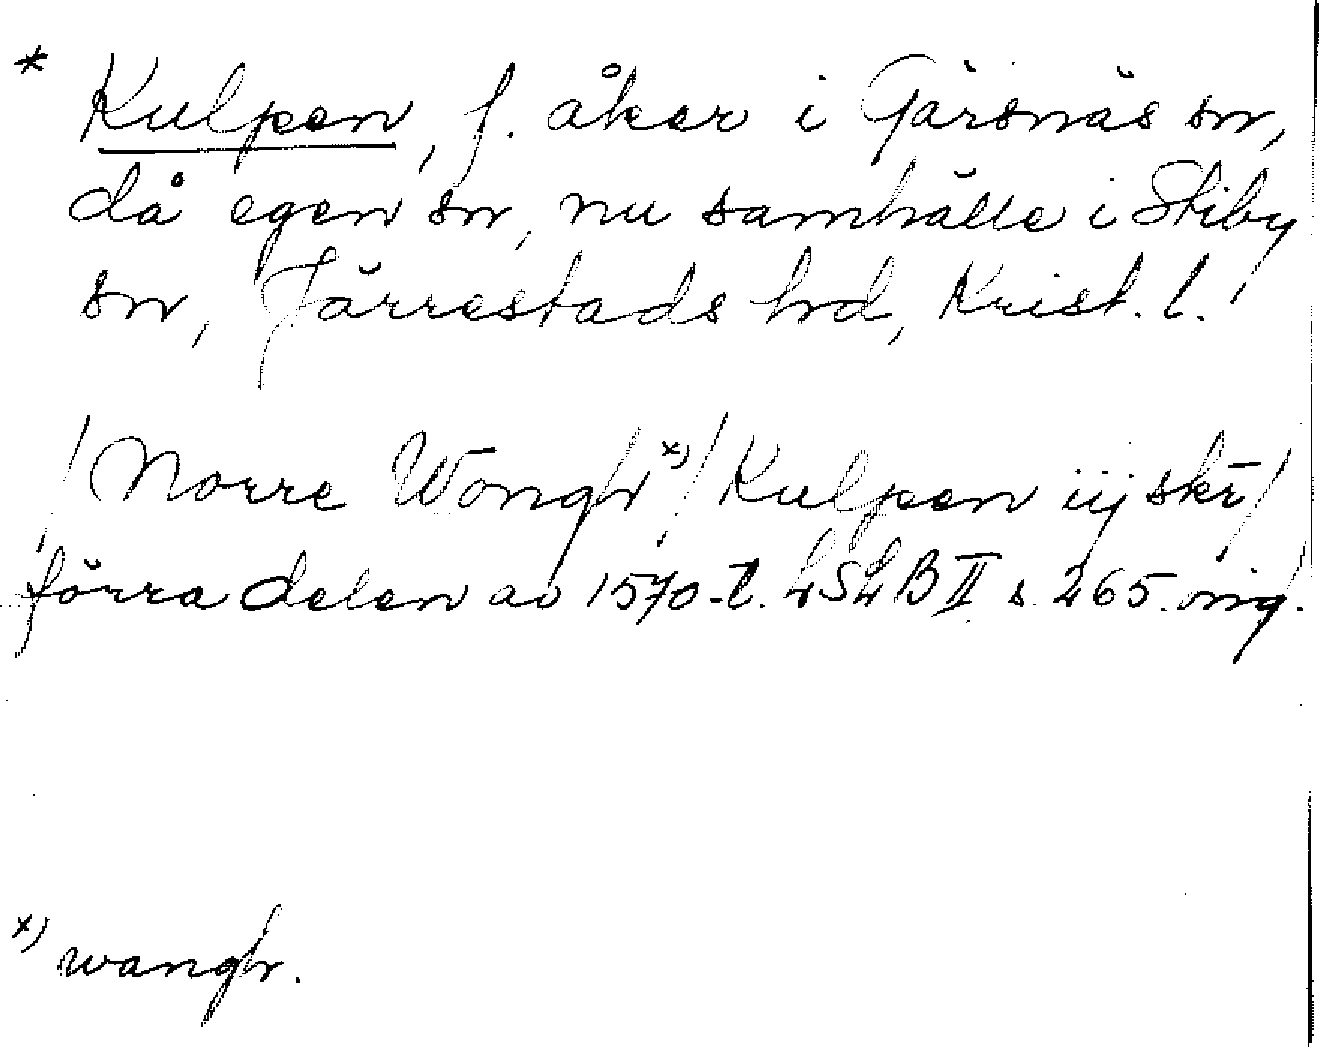 * Kulpen, f. åker i Gärsnäs sn,
då egen sn, nu samhälle i Stiby
sn, Järrestads hd, Krist. l.
/ Norre Wongh x) / Kulpen iij skr /
förra delen av 1570-t. LSLB II s. 265. orig.
x) wangh.